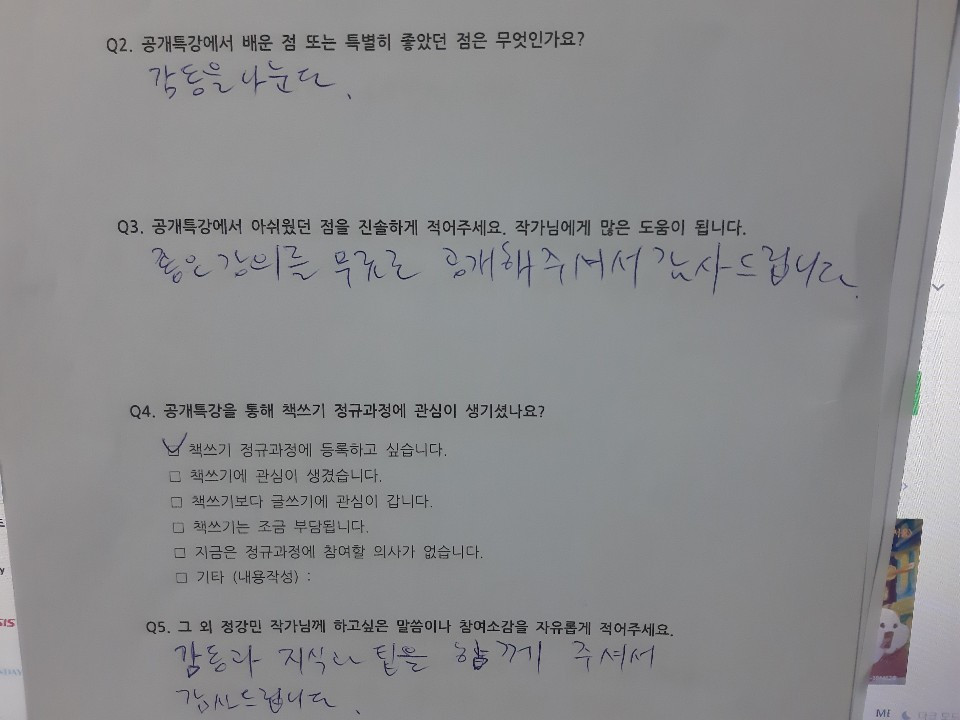 Q2. 공개특강에서 배운 점 또는 특별히 좋았던 점은 무엇인가요?
감동을 나눈다.
Q3. 공개특강에서 아쉬웠던 점을 진솔하게 적어주세요. 작가님에게 많은 도움이 됩니다.
좋은 강의를 무료로 공개해주셔서 감사드립니다.
Q4. 공개특강을 통해 책쓰기 정규과정에 관심이 생기셨나요?
☑ 책쓰기 정규과정에 등록하고 싶습니다.
□ 책쓰기에 관심이 생겼습니다.
□ 책쓰기보다 글쓰기에 관심이 갑니다.
□ 책쓰기는 조금 부담됩니다.
□ 지금은 정규과정에 참여할 의사가 없습니다.
□ 기타 (내용작성) :
Q5. 그 외 정강민 작가님께 하고싶은 말씀이나 참여소감을 자유롭게 적어주세요.
감동과 지식과 팁을 함께 주셔서
감사드립니다.
Mi